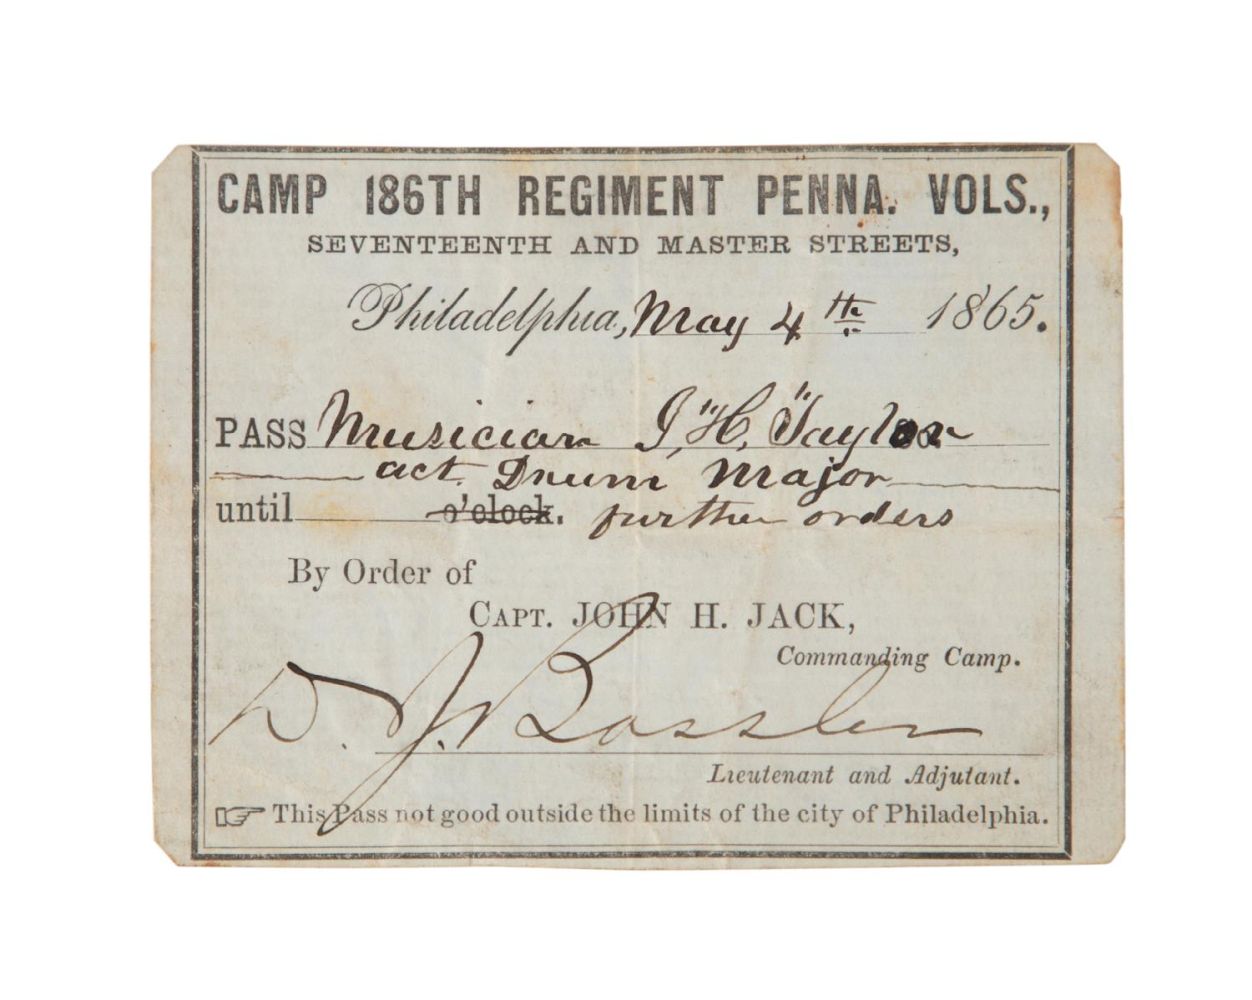 CAMP 186TH REGIMENT PENNA. VOLS.,
SEVENTEENTH AND MASTER STREETS,
Philadelphia, May 4th 1865.
PASS Musician J. H. Taylor
act. Drum Major
until o'clock. further orders
By Order of
CAPT. JOHN H. JACK,
Commanding Camp.
D. J. Bossler
Lieutenant and Adjutant.
☞ This Pass not good outside the limits of the city of Philadelphia.